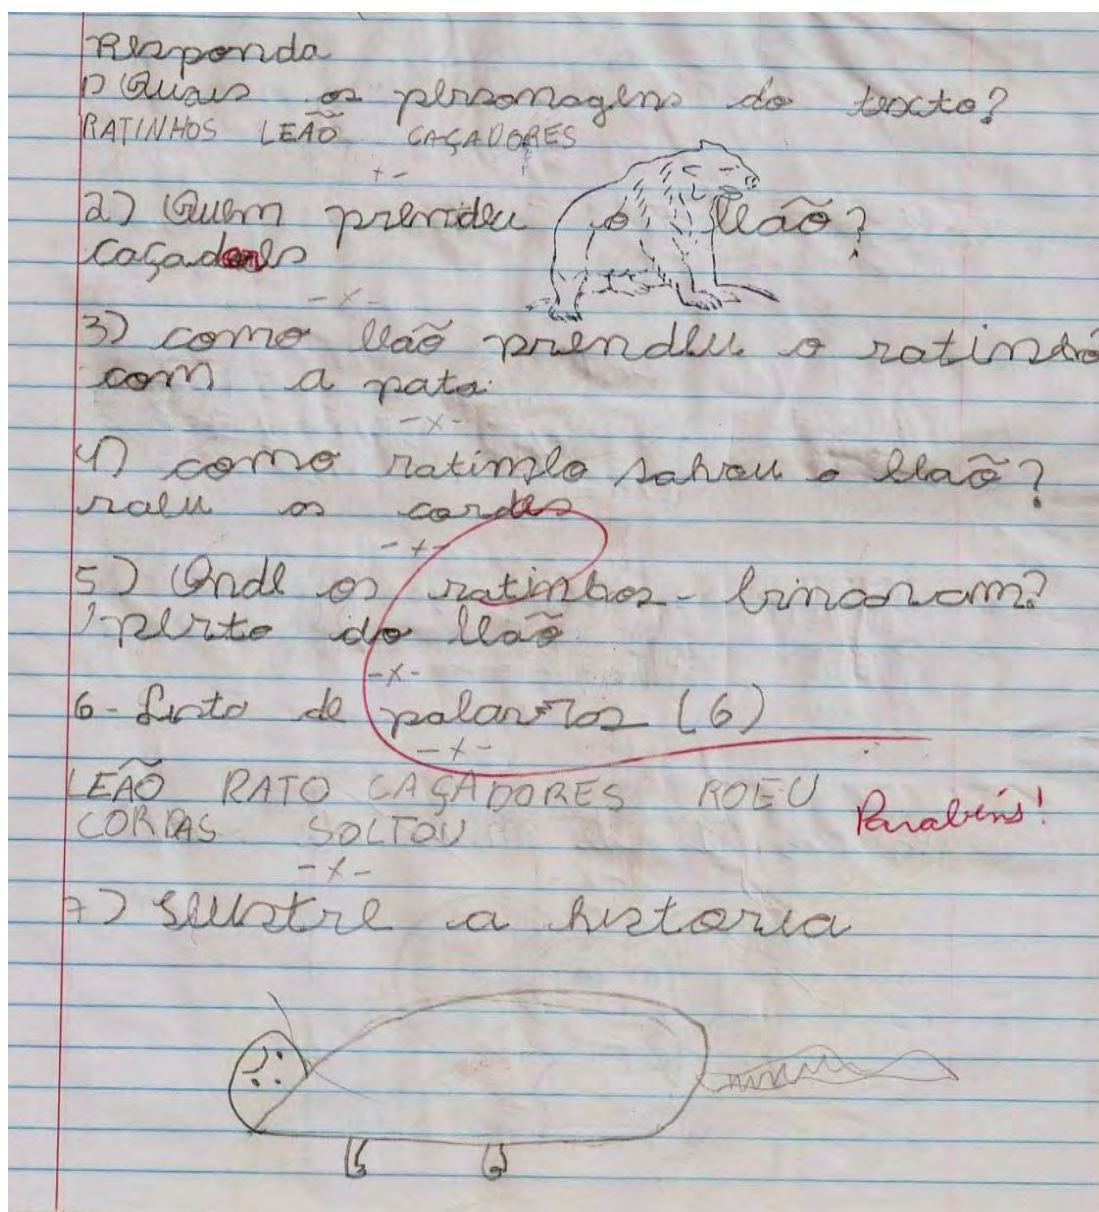 Responda
1) Quais os personagens do texto?
RATINHOS LEÃO CAÇADORES
2) Quem prendeu o leão?
caçadores
3) como leão prendeu o ratinho
com a pata.
4) como ratinho salvou o leão?
roeu as cordas
5) Onde os ratinhos - brincavam?
perto do leão
6- Lista de palavras (6)
LEÃO RATO CAÇADORES ROEU
CORDAS SOLTOU
Parabéns!
7) Ilustre a historia